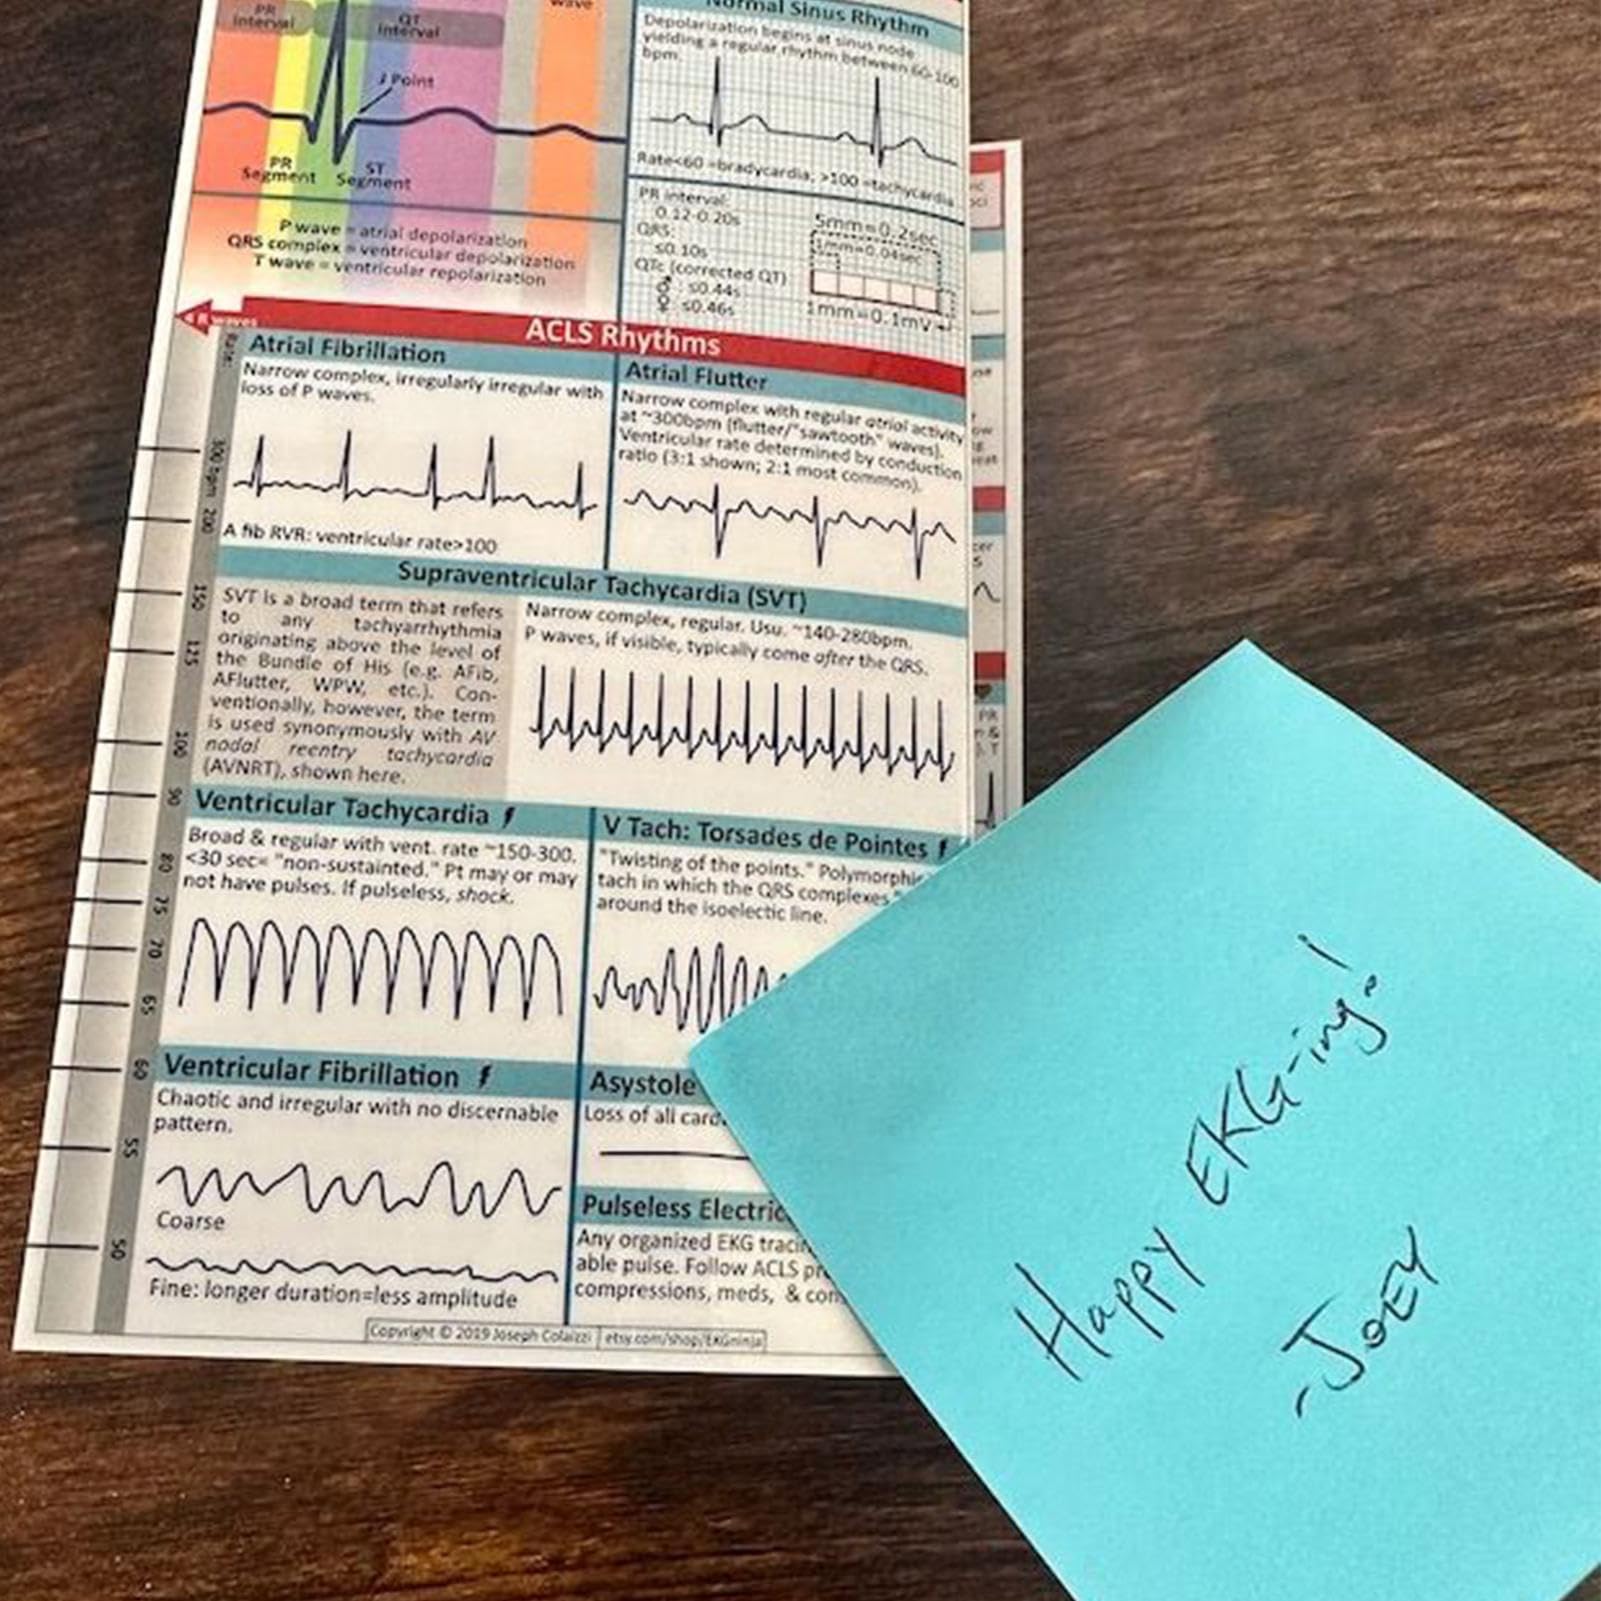 PR
interval
QT
interval
wave
J Point
PR
Segment
ST
Segment
P wave = atrial depolarization
QRS complex = ventricular depolarization
T wave = ventricular repolarization
Normal Sinus Rhythm
Depolarization begins at sinus node
yielding a regular rhythm between 60-100
bpm.
Rate<60 =bradycardia; >100 =tachycardia
PR interval:
0.12-0.20s
QRS:
≤0.10s
QTc (corrected QT)
♂ : ≤0.44s
♀ : ≤0.46s
5mm=0.2sec
1mm=0.04sec
1mm=0.1mV
4 R waves
ACLS Rhythms
Rate:
300 bpm
200
150
125
100
90
80
75
70
65
60
55
50
Atrial Fibrillation
Narrow complex, irregularly irregular with
loss of P waves.
A fib RVR: ventricular rate>100
Atrial Flutter
Narrow complex with regular atrial activity
at ~300bpm (flutter/"sawtooth" waves).
Ventricular rate determined by conduction
ratio (3:1 shown; 2:1 most common).
Supraventricular Tachycardia (SVT)
SVT is a broad term that refers
to any tachyarrhythmia
originating above the level of
the Bundle of His (e.g. AFib,
AFlutter, WPW, etc.). Con-
ventionally, however, the term
is used synonymously with AV
nodal reentry tachycardia
(AVNRT), shown here.
Narrow complex, regular. Usu. ~140-280bpm.
P waves, if visible, typically come after the QRS.
Ventricular Tachycardia
Broad & regular with vent. rate ~150-300.
<30 sec= "non-sustainted." Pt may or may
not have pulses. If pulseless, shock.
V Tach: Torsades de Pointes
"Twisting of the points." Polymorphic
tach in which the QRS complexes "
around the isoelectic line.
Ventricular Fibrillation
Chaotic and irregular with no discernable
pattern.
Coarse
Fine: longer duration=less amplitude
Asystole
Loss of all card
Pulseless Electric
Any organized EKG tracin
able pulse. Follow ACLS pr
compressions, meds, & con
Copyright © 2019 Joseph Colaizzi etsy.com/shop/EKGninja
Happy EKG-ing!
-JOEY